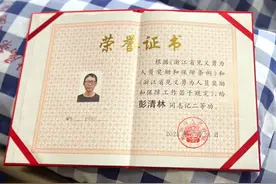 荣誉证书
根据《浙江省见义勇为
人员奖励和保障条例》和
《浙江省见义勇为人员奖励
和保障工作若干规定》,给
彭清林 同志记二等功。